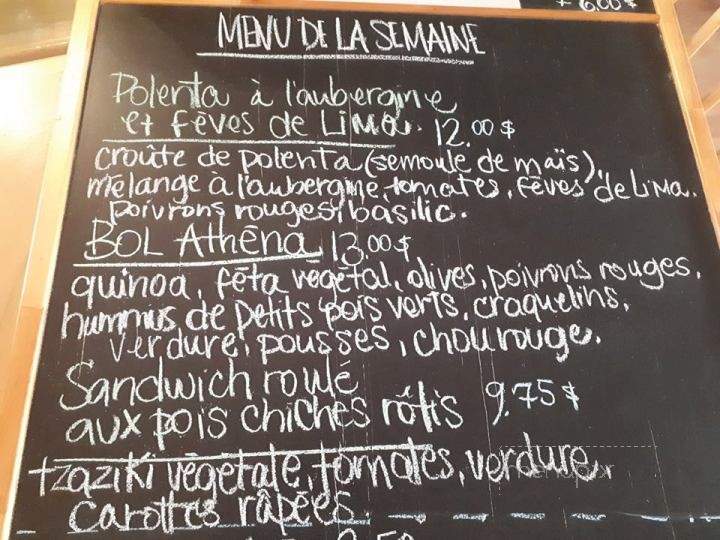 + 6.00 $
MENU DE LA SEMAINE
Polenta à l'aubergine
et fèves de Lima. 12.00 $
croûte de polenta (semoule de maïs),
mélange à l'aubergine, tomates, fèves de Lima.
poivrons rouges, basilic.
BOL Athéna 13.00 $
quinoa, féta végétal, olives, poivrons rouges,
hummus de petits pois verts, craquelins,
verdure, pousses, chou rouge.
Sandwich roulé
aux pois chiches rôtis 9.75 $
tzaziki végétale, tomates, verdure,
carottes râpées.